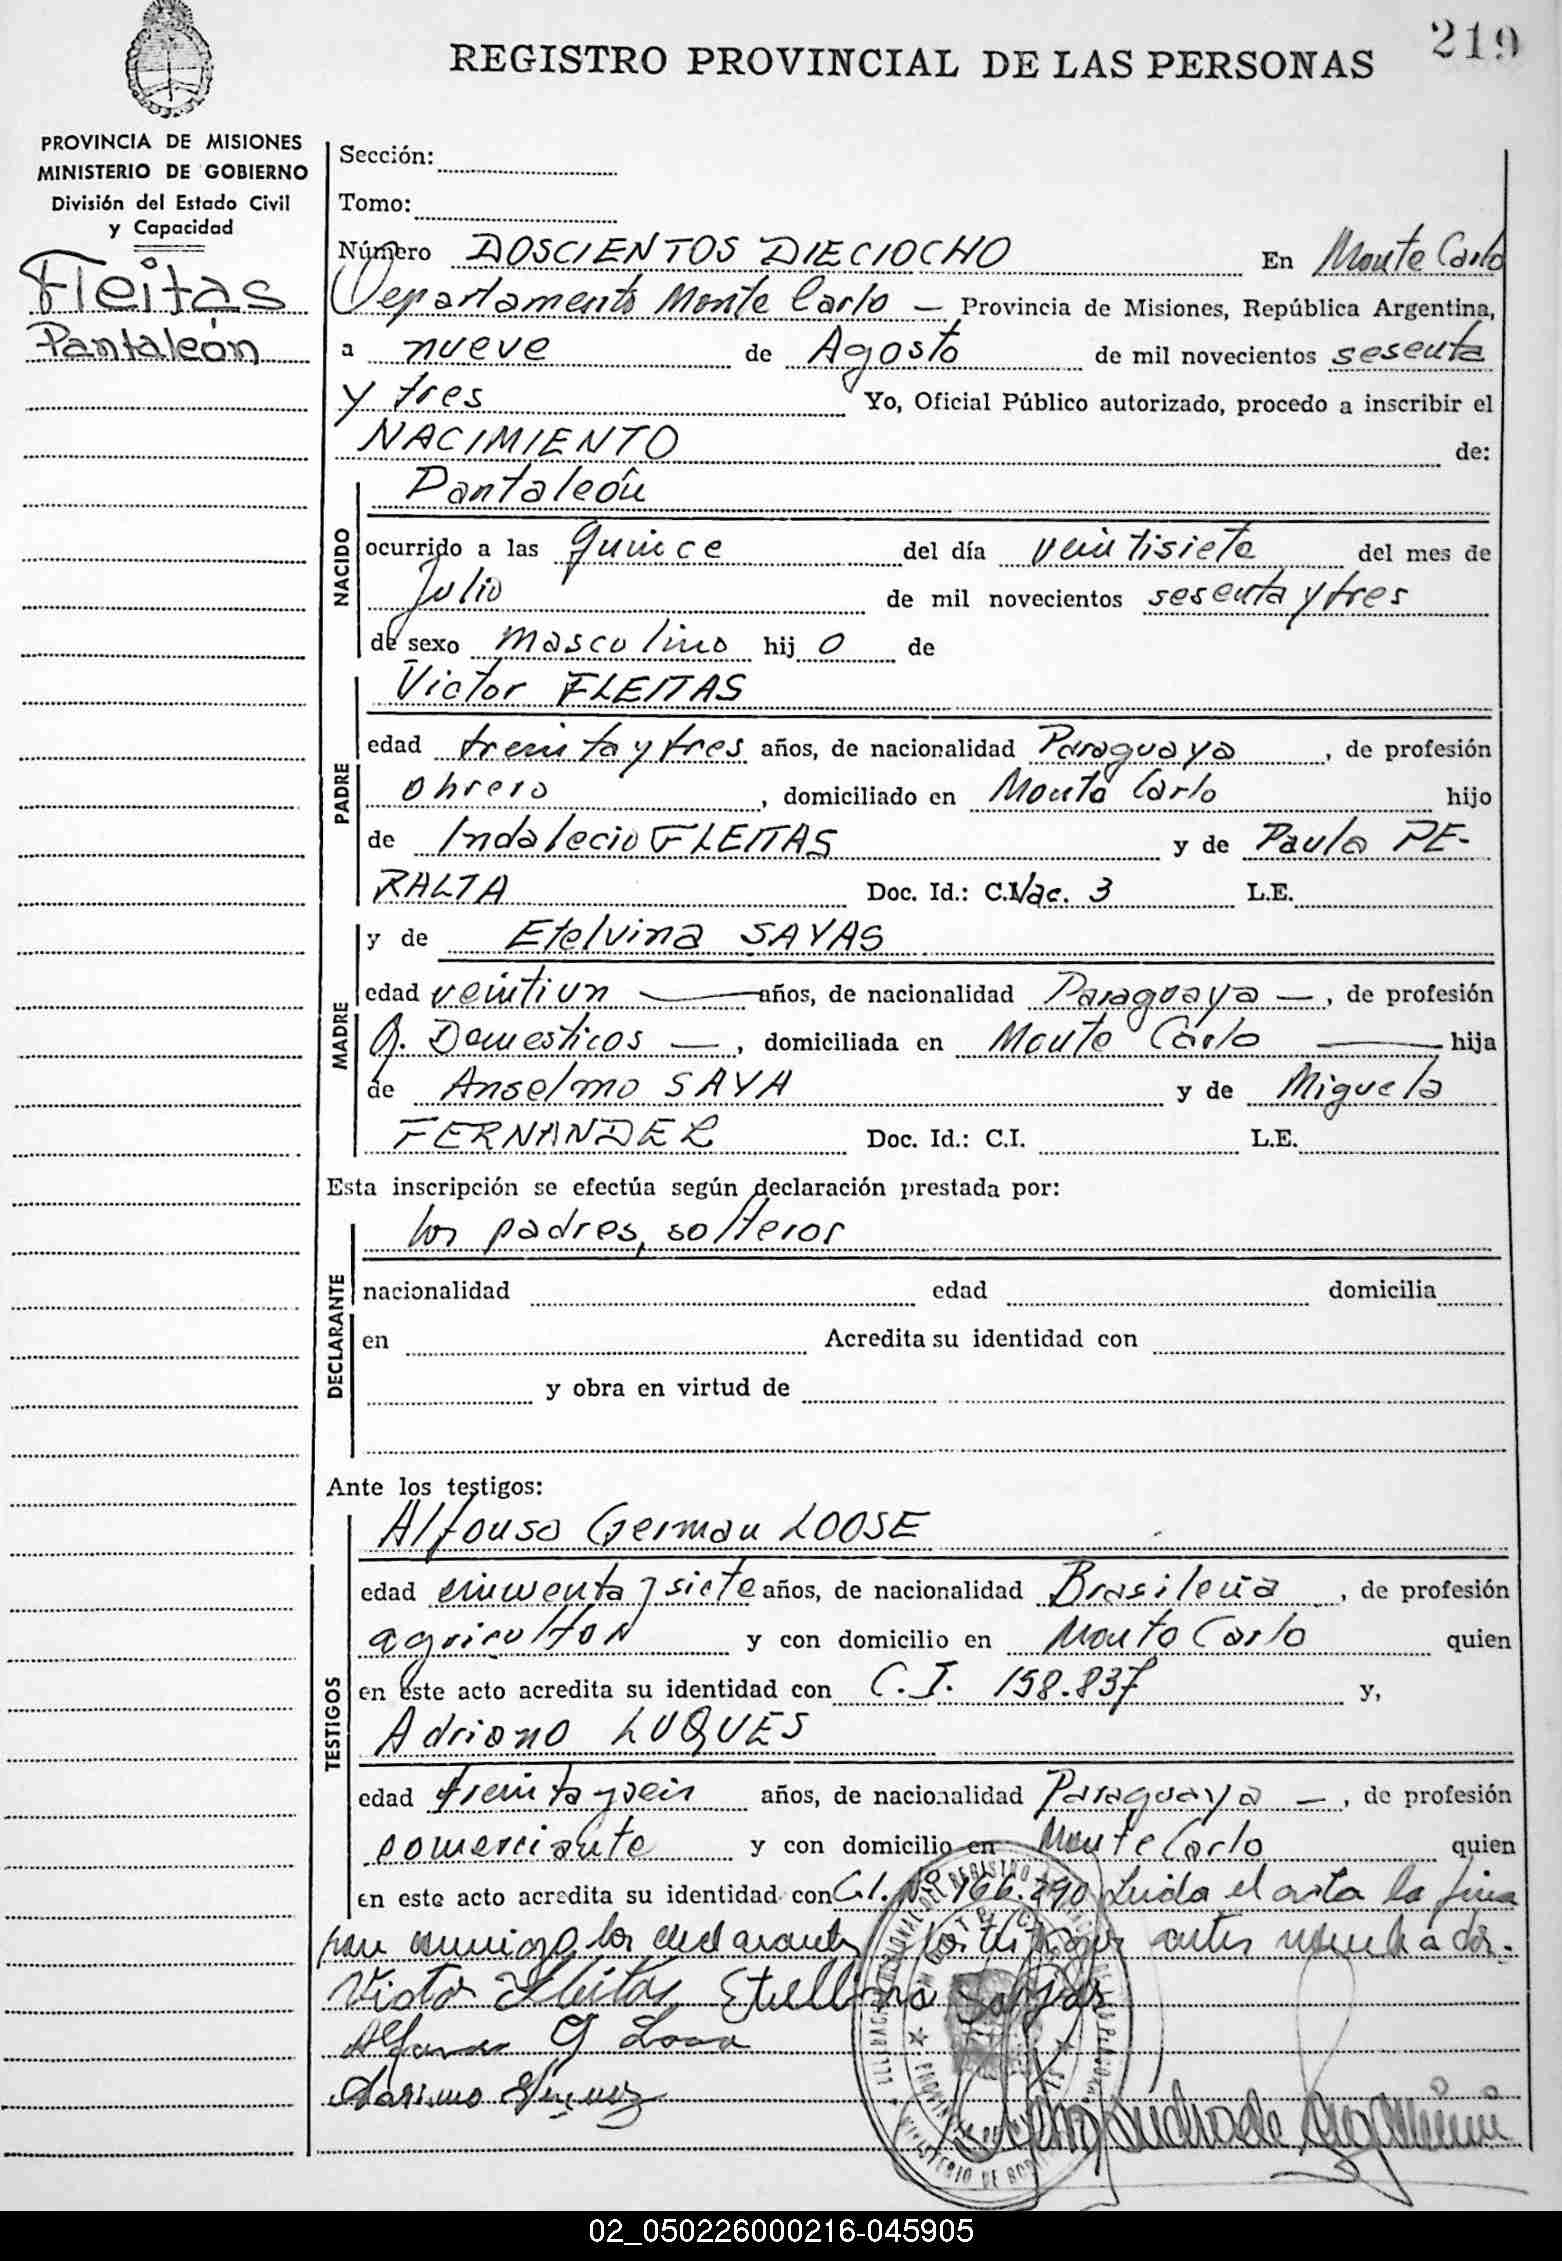 219
REGISTRO PROVINCIAL DE LAS PERSONAS
PROVINCIA DE MISIONES
MINISTERIO DE GOBIERNO
División del Estado Civil
y Capacidad
Fleitas
Pantaleón
Sección:
Tomo:
Número DOSCIENTOS DIECIOCHO En Monte Carlo
Departamento Monte Carlo — Provincia de Misiones, República Argentina,
a nueve de Agosto de mil novecientos sesenta
y tres Yo, Oficial Público autorizado, procedo a inscribir el
NACIMIENTO de:
NACIDO
Pantaleón
ocurrido a las quince del día veintisiete del mes de
Julio de mil novecientos sesenta y tres
de sexo masculino hijo de
PADRE
Victor FLEITAS
edad treinta y tres años, de nacionalidad Paraguaya, de profesión
obrero, domiciliado en Monte Carlo hijo
de Indalecio FLEITAS y de Paula PE-
RALTA Doc. Id.: C. Nac. 3 L.E.
MADRE
y de Etelvina SAYAS
edad veintiun — años, de nacionalidad Paraguaya —, de profesión
Q. Domesticos —, domiciliada en Monte Carlo — hija
de Anselmo SAYA y de Miguela
FERNANDEZ Doc. Id.: C.I. L.E.
Esta inscripción se efectúa según declaración prestada por:
DECLARANTE
los padres, solteros
nacionalidad edad domicilia
en Acredita su identidad con
y obra en virtud de
Ante los testigos:
TESTIGOS
Alfonso German LOOSE
edad cincuenta y siete años, de nacionalidad Brasileña, de profesión
agricultor y con domicilio en Monte Carlo quien
en este acto acredita su identidad con C.I. 158.837 y,
Adriano LUQUES
edad treinta y seis años, de nacionalidad Paraguaya —, de profesión
comerciante y con domicilio en Monte Carlo quien
en este acto acredita su identidad con C.I. Nº 166.290 Leida el acta la firma
los declarantes y los testigos antes
Victor Fleitas Etelbina Sayas
Alfonso G Loose
02_050226000216-045905